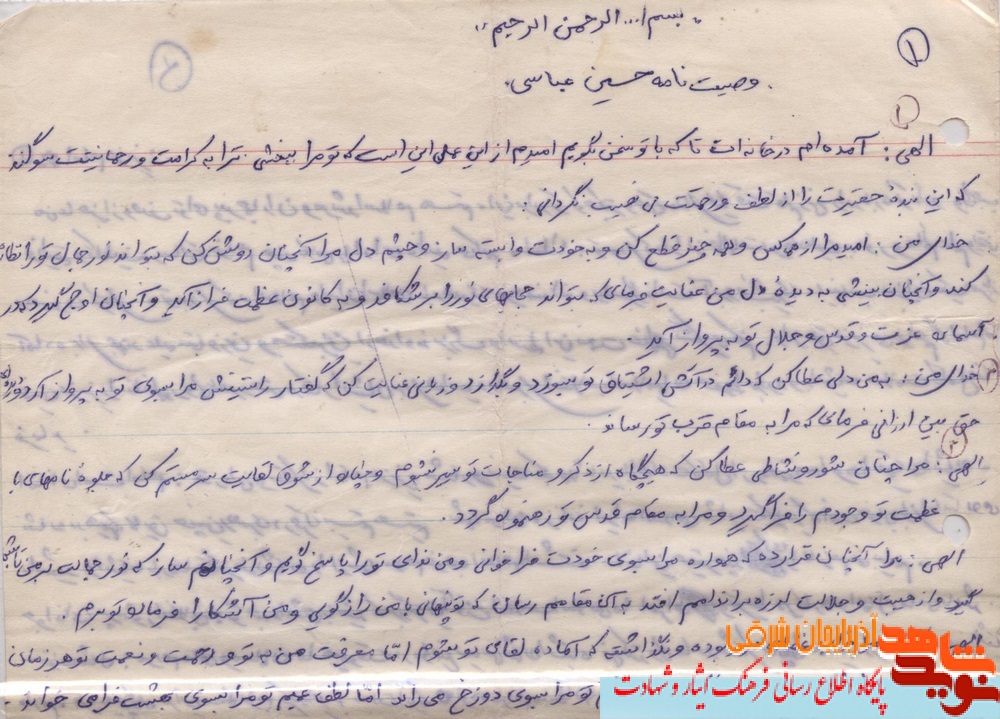 بسم ا... الرحمن الرحیم
۱
وصیت نامه حسین عباسی
الهی: آمده‌ام در خانه‌ات تا که با تو سخن بگویم امیدم از این عملی این است که تو مرا ببخشی ترا به کرامت و رحمانیتت سوگند
که این بندهٔ حقیرت را از لطف و رحمتت بی نصیب نگردانی.
خدای من: امید مرا از همه کس و همه چیز قطع کن و به خودت وابسته ساز و چشم دل مرا آنچنان روشن کن که بتواند نور جمال تو را
کند و آنچنان بینشی به دیدهٔ دل من عنایت فرمای که بتواند حجابهای نور را بر شکافد و به کانون عظمت فراز آید و آنچنان اوج گیرد که در
آسمان عزت و قدس و جلال تو به پرواز آید.
خدای من: به من دلی عطا کن که دائم در آتش اشتیاق تو بسوزد و بگدازد و زبانی عنایت کن که گفتار راستینش مرا بسوی تو به پرواز آرد
حق بین ارزانی فرمای که مرا به مقام قرب تو رساند.
الهی: مرا چنان شور و نشاطی عطا کن که هیچگاه از ذکر و مناجات تو سیر نشوم و چنان از شوق لقایت سرمستم کن که جلوهٔ نامهای با
عظمت تو وجودم را فراگیرد و مرا به مقام قدس تو رهنمون گردد.
الهی: مرا آنچنان قرار ده که همواره مرا بسوی خودت فراخوانی و من ندای تو را پاسخ گویم و آنچنانم ساز که نور جمالت بر من
گیرد و از هیبت و جلالت لرزه بر اندامم افتد به آن مقامم رسان که تو پنهانی با من راز گویی و من آشکارا فرمان تو برم.
بوده و نگذاشته که آماده لقای تو بشوم امّا معرفت من به تو و رحمت و نعمت تو هر زمان
تو مرا بسوی دوزخ می‌راند امّا لطف عمیم تو مرا بسوی بهشت فرا می خواند.
نوید شاهد
آذربایجان شرقی
پایگاه اطلاع رسانی فرهنگ ایثار و شهادت